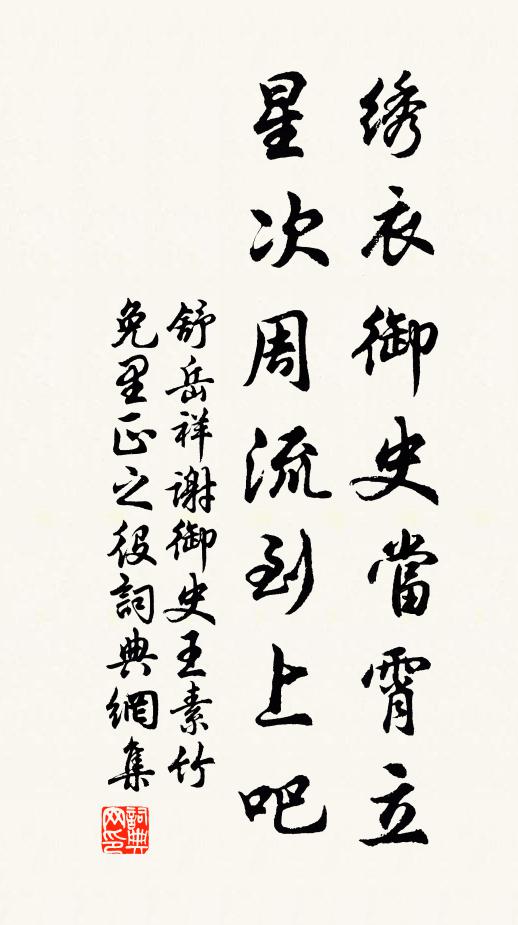 绣衣御史當霄立
星次周流到上吧
舒岳祥谢御史王素竹
免里正之役詞典網集
詞典网印